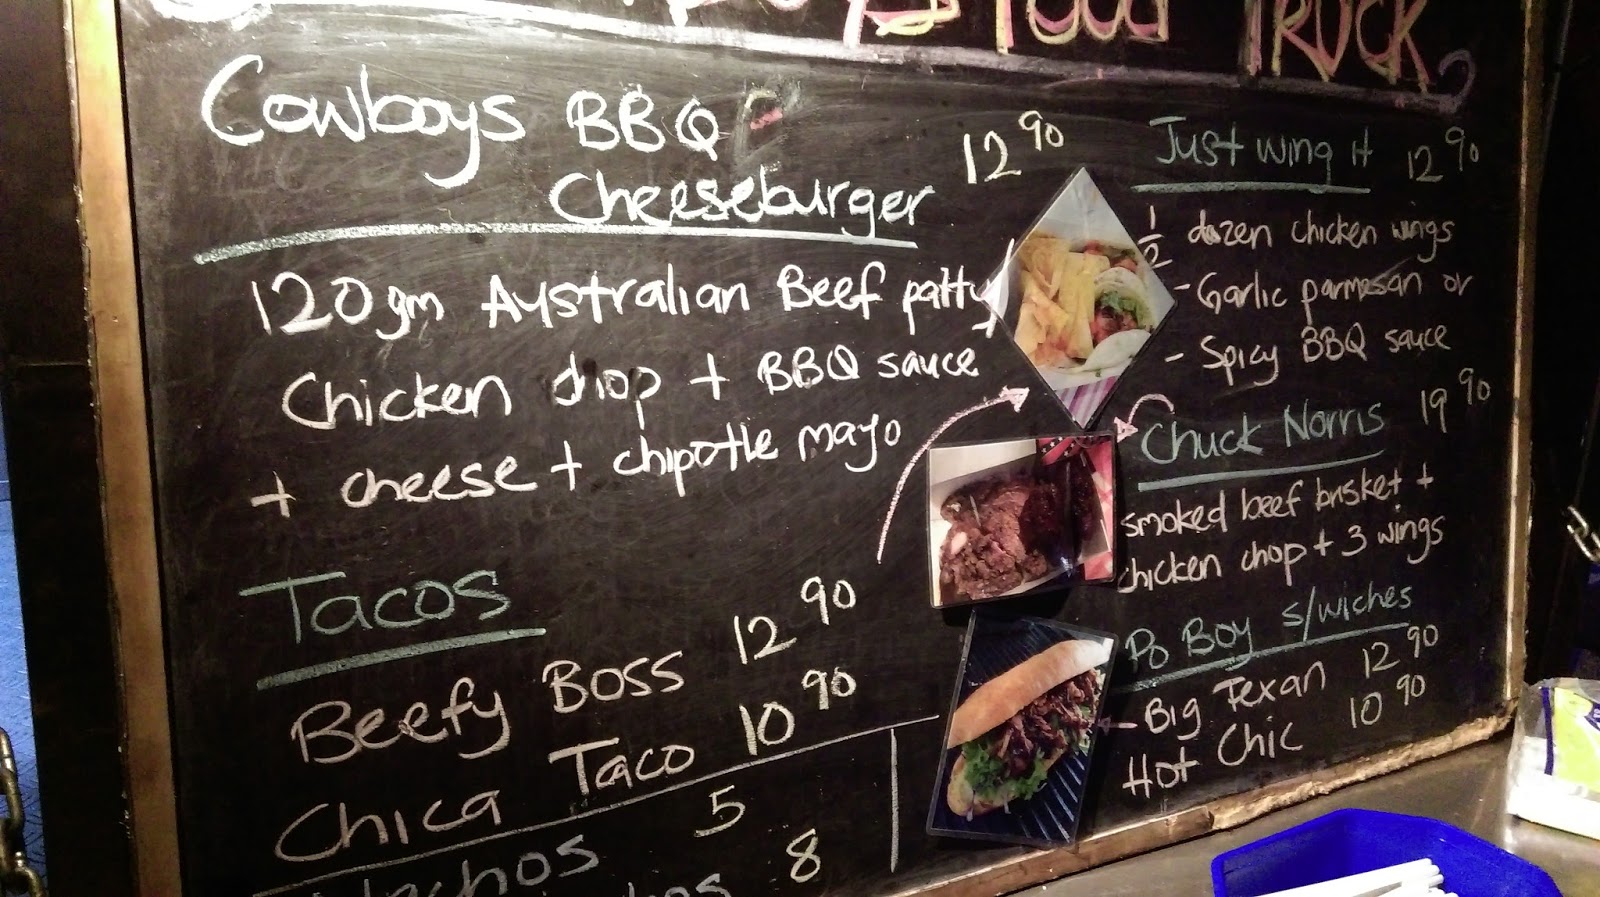 Food Truck
Cowboys BBQ
Cheeseburger 12 90
120gm Australian Beef patty
Chicken chop + BBQ sauce
+ cheese + chipotle mayo
Tacos
Beefy Boss 12 90
Chica Taco 10 90
Nachos 5
8
Just wing it 12 90
1/2 dozen chicken wings
- Garlic parmesan or
- Spicy BBQ sauce
Chuck Norris 19 90
smoked beef brisket +
chicken chop + 3 wings
Po Boy s/wiches
- Big Texan 12 90
Hot Chic 10 90